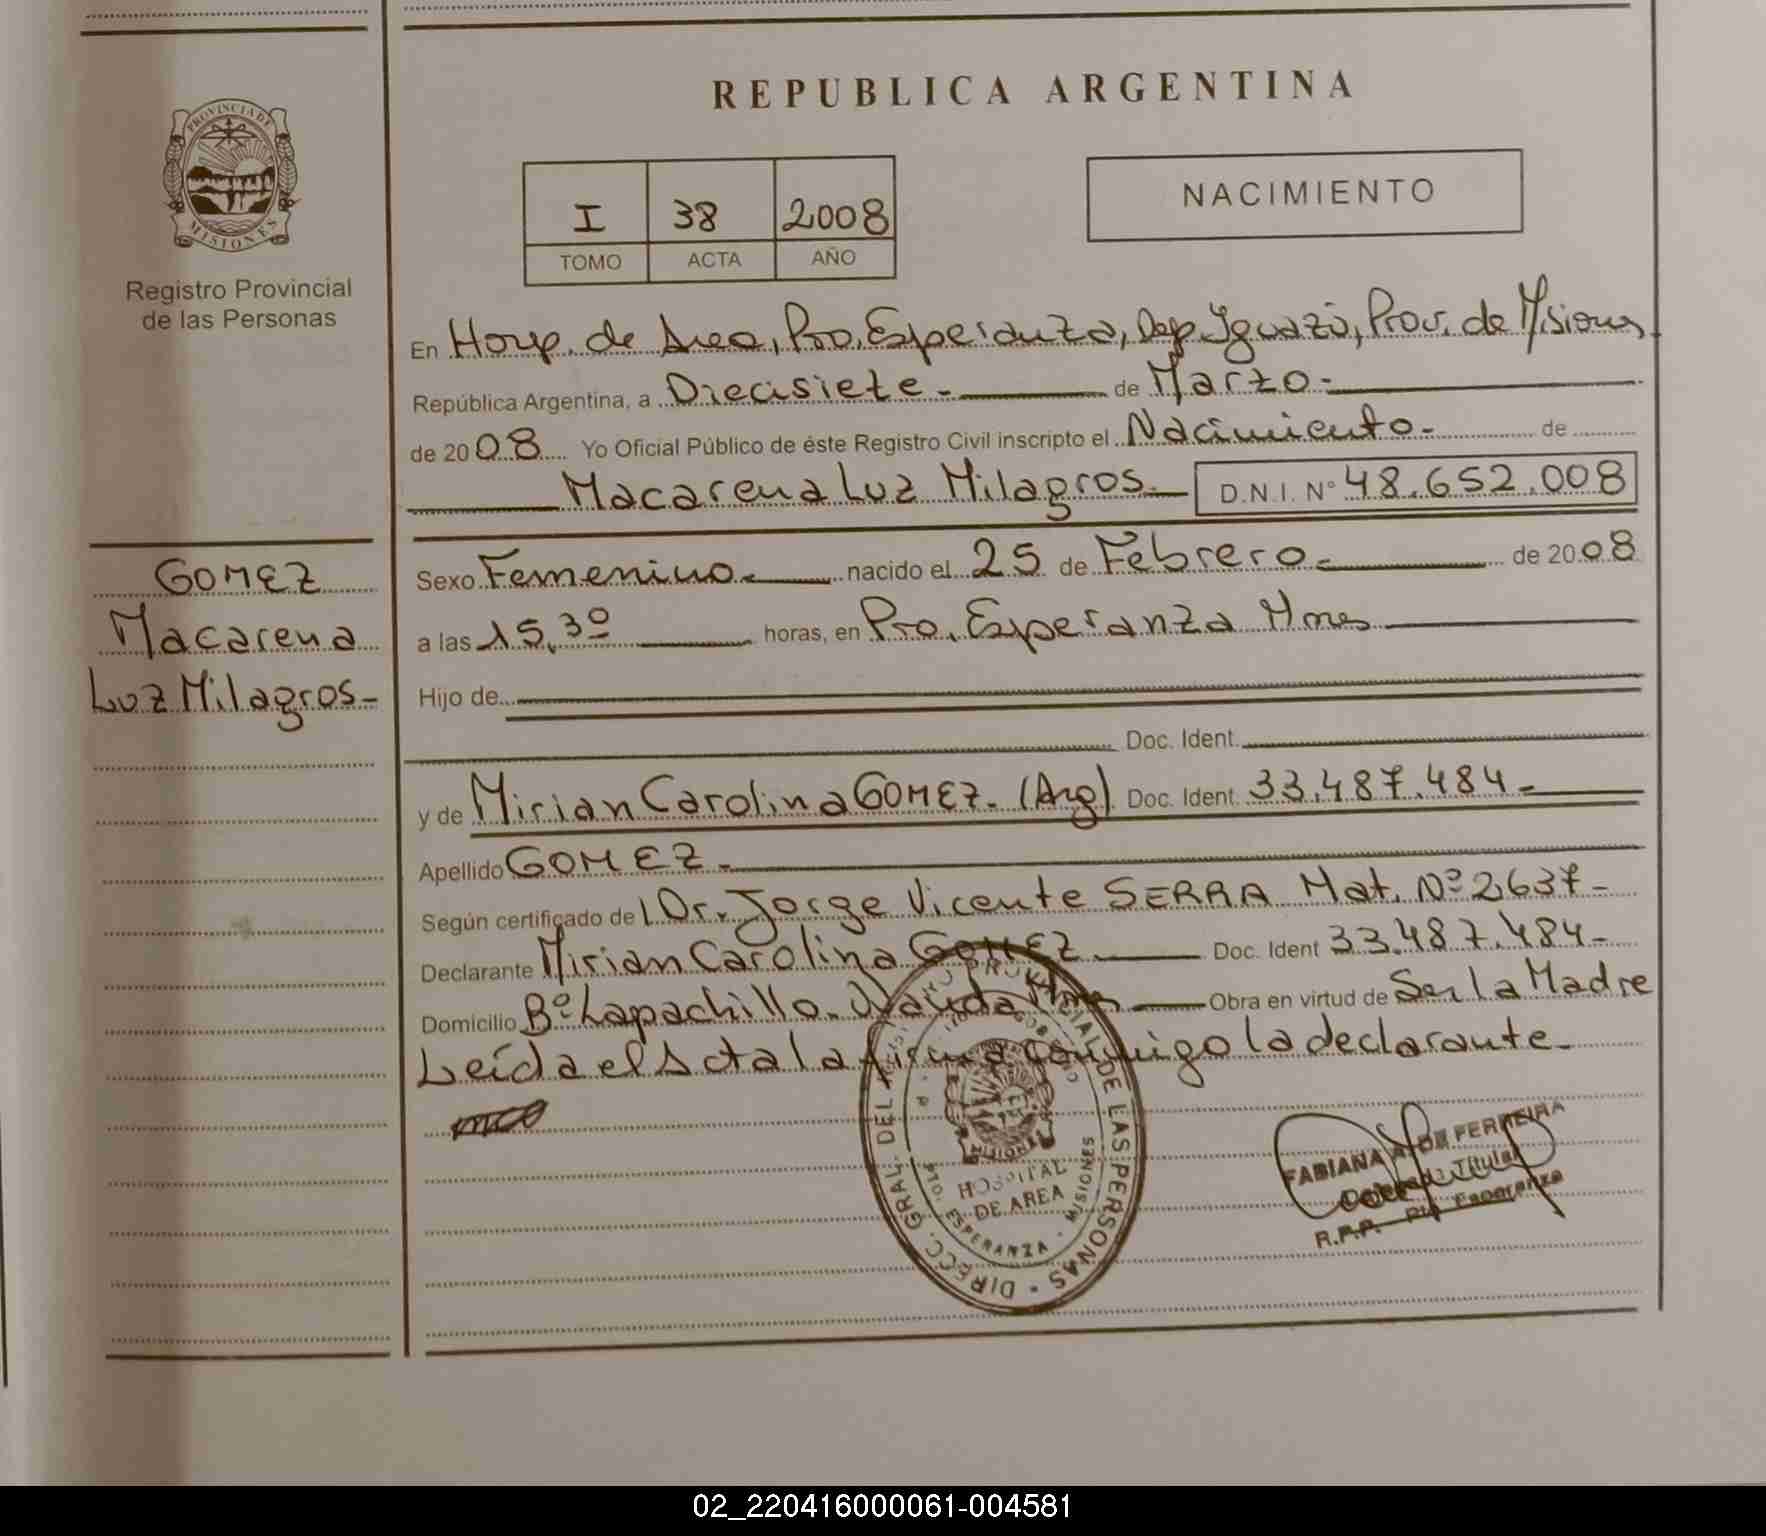 REPUBLICA ARGENTINA
PROVINCIA DE MISIONES
Registro Provincial
de las Personas
I 38 2008
TOMO ACTA AÑO
NACIMIENTO
En Hosp. de Area, Pto. Esperanza, Dep. Iguazú, Prov. de Misiones,
República Argentina, a Diecisiete.- de Marzo.-
de 2008 Yo Oficial Público de éste Registro Civil inscripto el Nacimiento.- de
Macarena Luz Milagros.- D.N.I. Nº 48.652.008
GOMEZ
Macarena
Luz Milagros-
Sexo Femenino.- nacido el 25 de Febrero.- de 2008
a las 15,30 horas, en Pto. Esperanza Mnes
Hijo de
Doc. Ident.
y de Mirian Carolina GOMEZ.- (Arg) Doc. Ident. 33.487.484-
Apellido GOMEZ.-
Según certificado de Dr. Jorge Vicente SERRA Mat. Nº 2637-
Declarante Mirian Carolina GOMEZ.- Doc. Ident 33.487.484-
Domicilio Bº Lapachillo. Wanda Mnes Obra en virtud de Ser la Madre
Leída el Acta la firma conmigo la declarante.-
DIRECC. GRAL. DEL REGISTRO PROVINCIAL DE LAS PERSONAS
HOSPITAL
DE AREA
PTO. ESPERANZA - MISIONES
FABIANA A. DE FERREIRA
Titular
R.P.P. Pto Esperanza
02_220416000061-004581